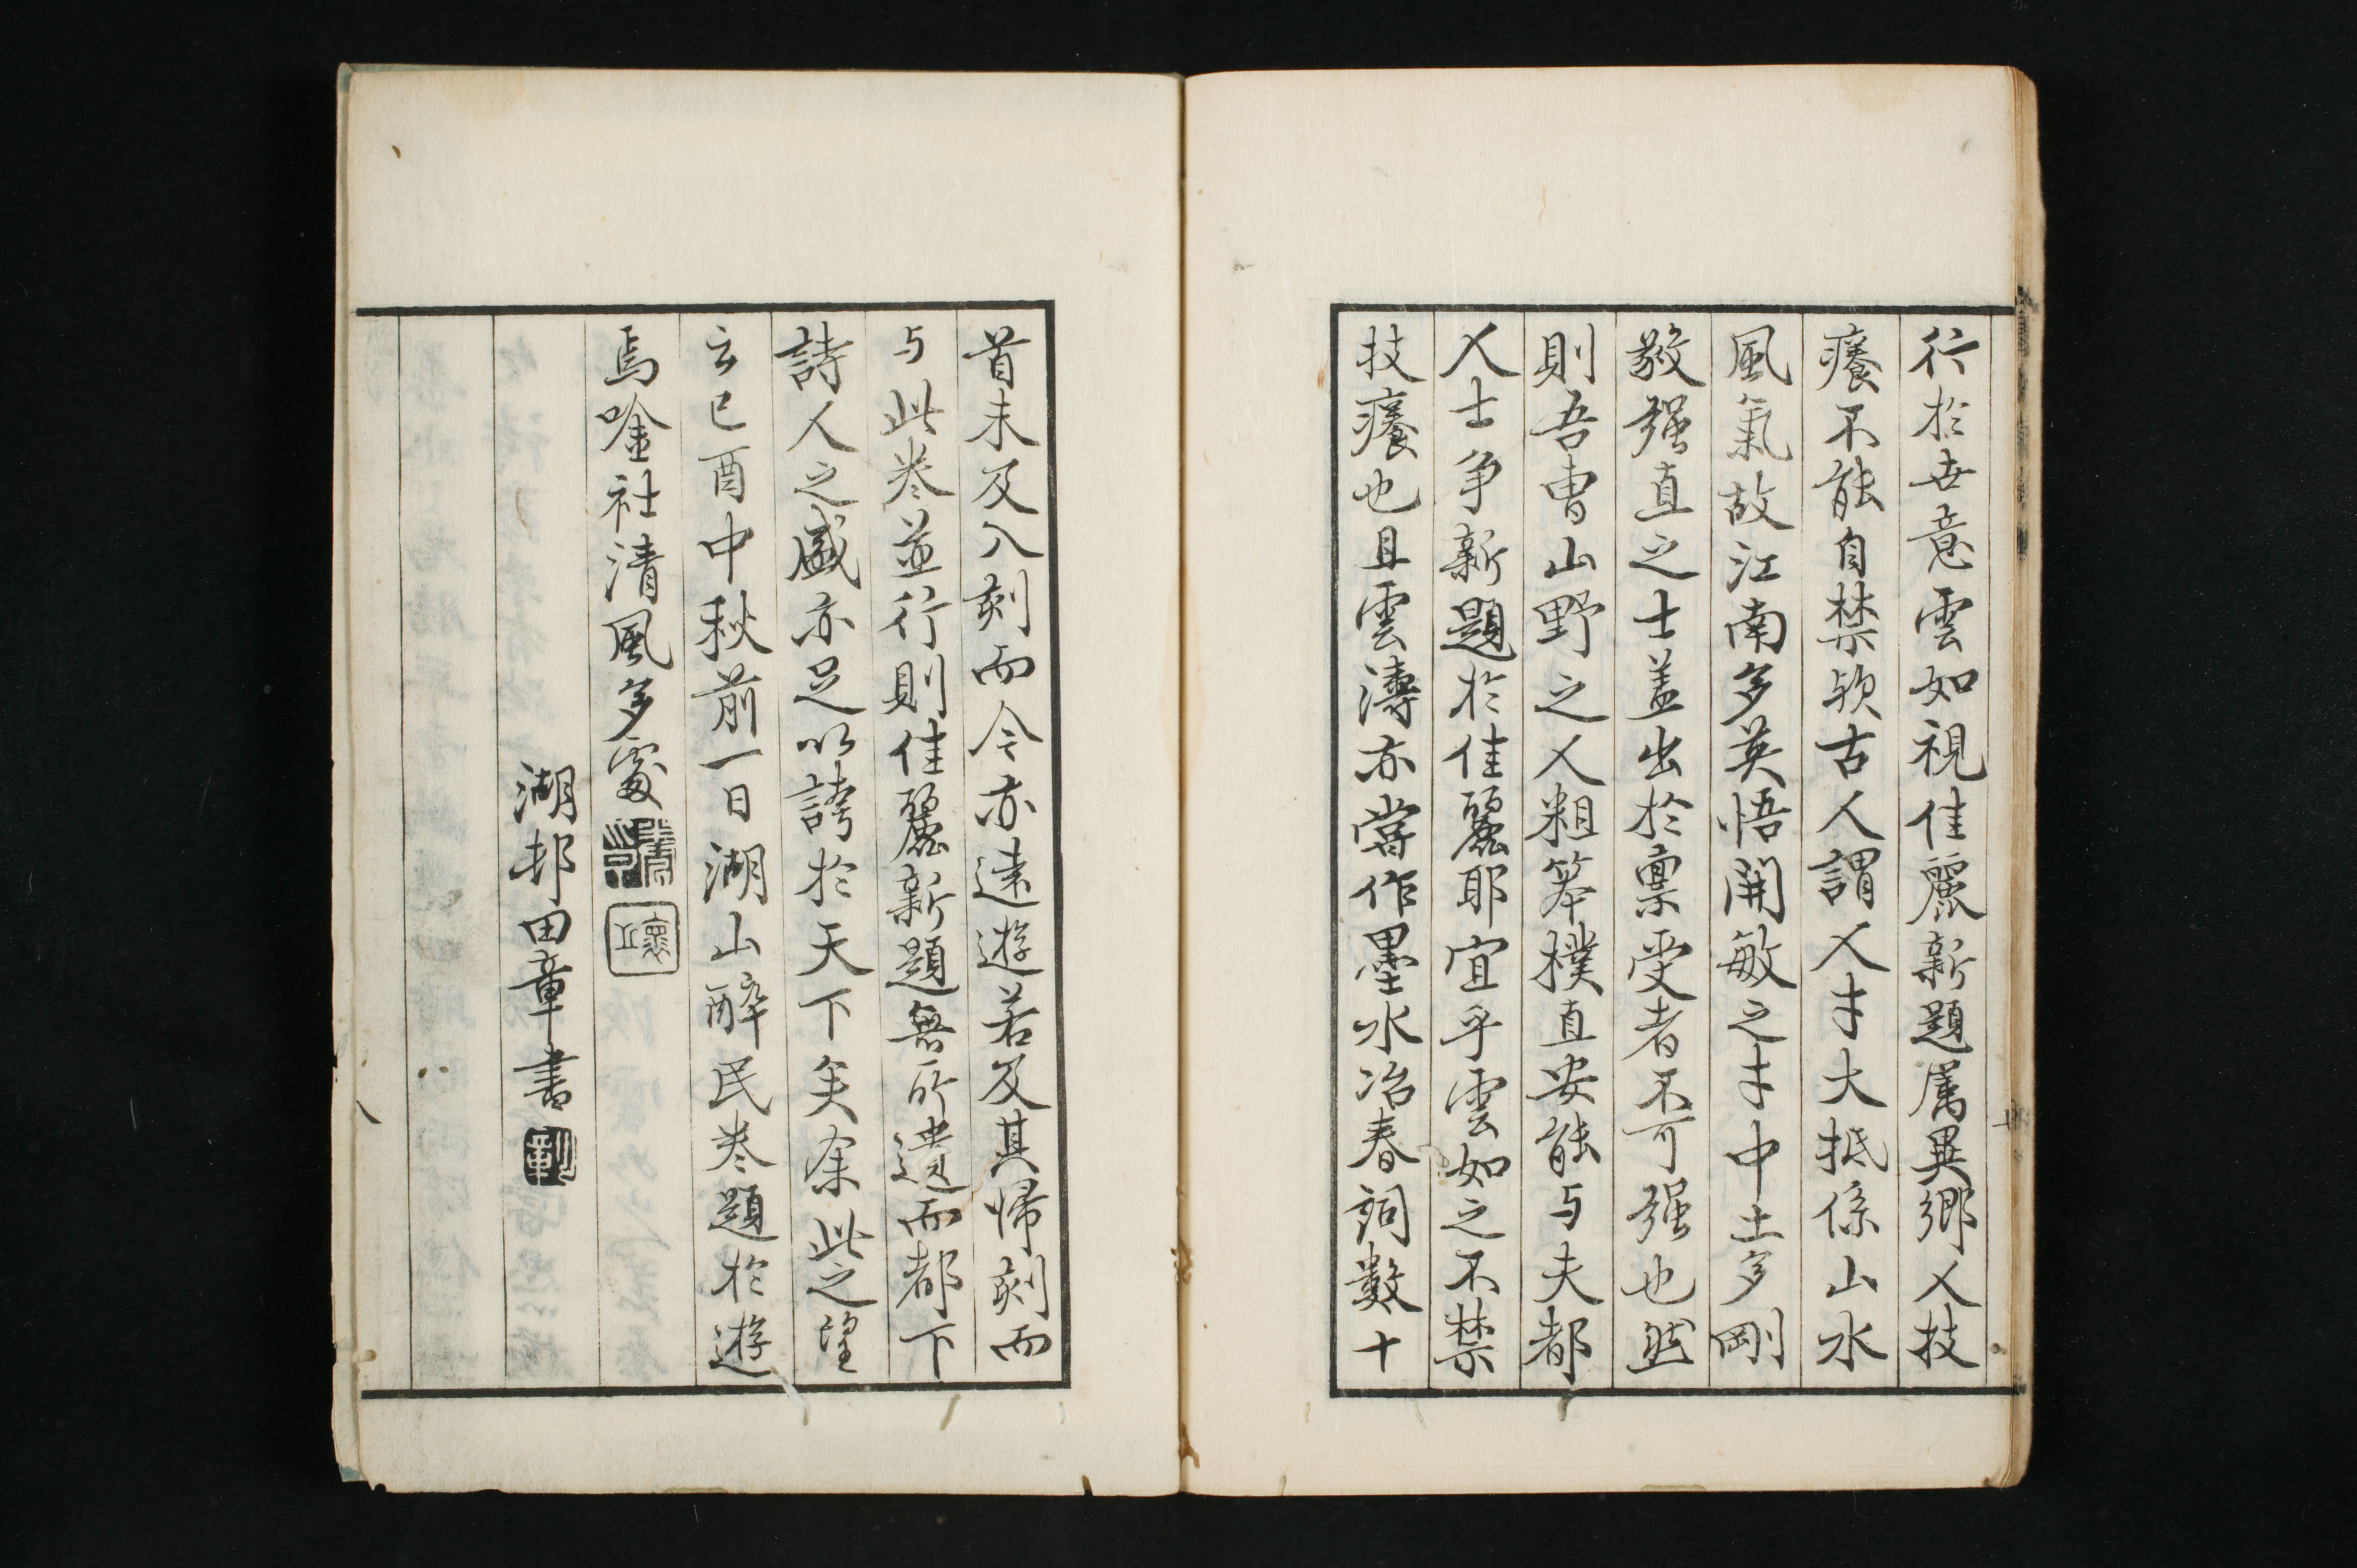 行於世意雲如視佳麗新題属異郷人技
癢不能自禁欤古人謂人才大抵係山水
風氣故江南多英悟開敏之才中土多剛
毅强直之士盖出於禀受者不可强也然
則吾曹山野之人粗笨樸直安能与夫都
人士争新題於佳麗耶宜乎雲如之不禁
技癢也且雲濤亦嘗作墨水冶春詞數十
首未及入刻而今亦遠遊若及其帰刻而
与此巻並行則佳麗新題無所遺而都下
詩人之盛亦足以誇於天下矣余此之望
云己酉中秋前一日湖山醉民巻題於遊
焉唫社清風多處
湖邨田章書